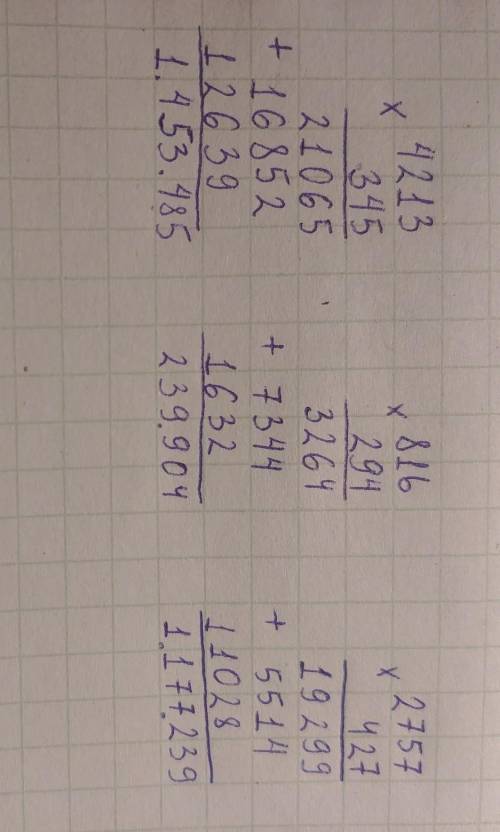 × 4213
345
21065
+ 16852
12639
1.453.485
× 816
294
3264
+ 7344
1632
239.904
× 2757
427
19299
+ 5514
11028
1.177.239